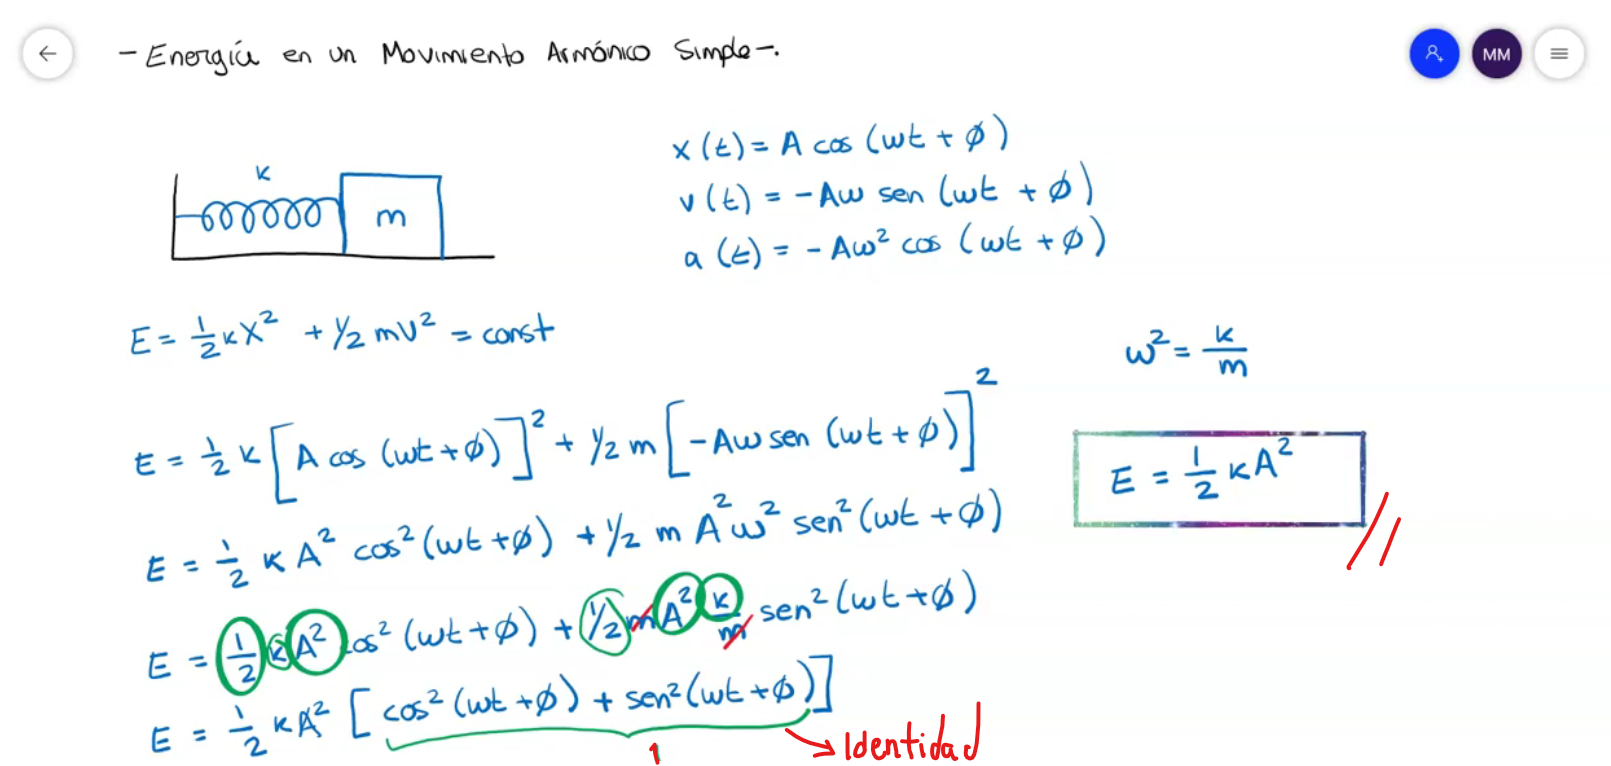 - Energía en un Movimiento Armónico Simple -.
MM
K
m
x(t) = A cos (wt + ϕ)
v(t) = -Aw sen (wt + ϕ)
a(t) = -Aω² cos (wt + ϕ)
E = 1/2 kx² + 1/2 mv² = const
ω² = k/m
E = 1/2 k [A cos (wt + ϕ)]² + 1/2 m [-Aw sen (wt + ϕ)]²
E = 1/2 kA²
E = 1/2 k A² cos² (wt + ϕ) + 1/2 m A² ω² sen² (wt + ϕ)
E = 1/2 k A² cos² (wt + ϕ) + 1/2 m A² k/m sen² (wt + ϕ)
E = 1/2 kA² [cos² (wt + ϕ) + sen² (wt + ϕ)]
1
→ Identidad